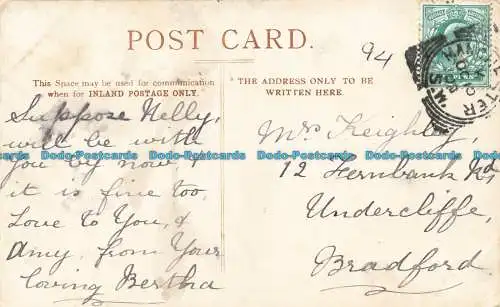 POST CARD.
94
This Space may be used for communication
when for INLAND POSTAGE ONLY.
THE ADDRESS ONLY TO BE
WRITTEN HERE.
Suppose Nelly,
will be with
you by now,
it is fine too,
Love to You, &
Amy, from Your
loving Bertha
Mrs Keighley
12 Fernbank Rd,
Undercliffe,
Bradford
Dodo-Postcards Dodo-Postcards Dodo-Postcards
Dodo-Postcards Dodo-Postcards Dodo-Postcards